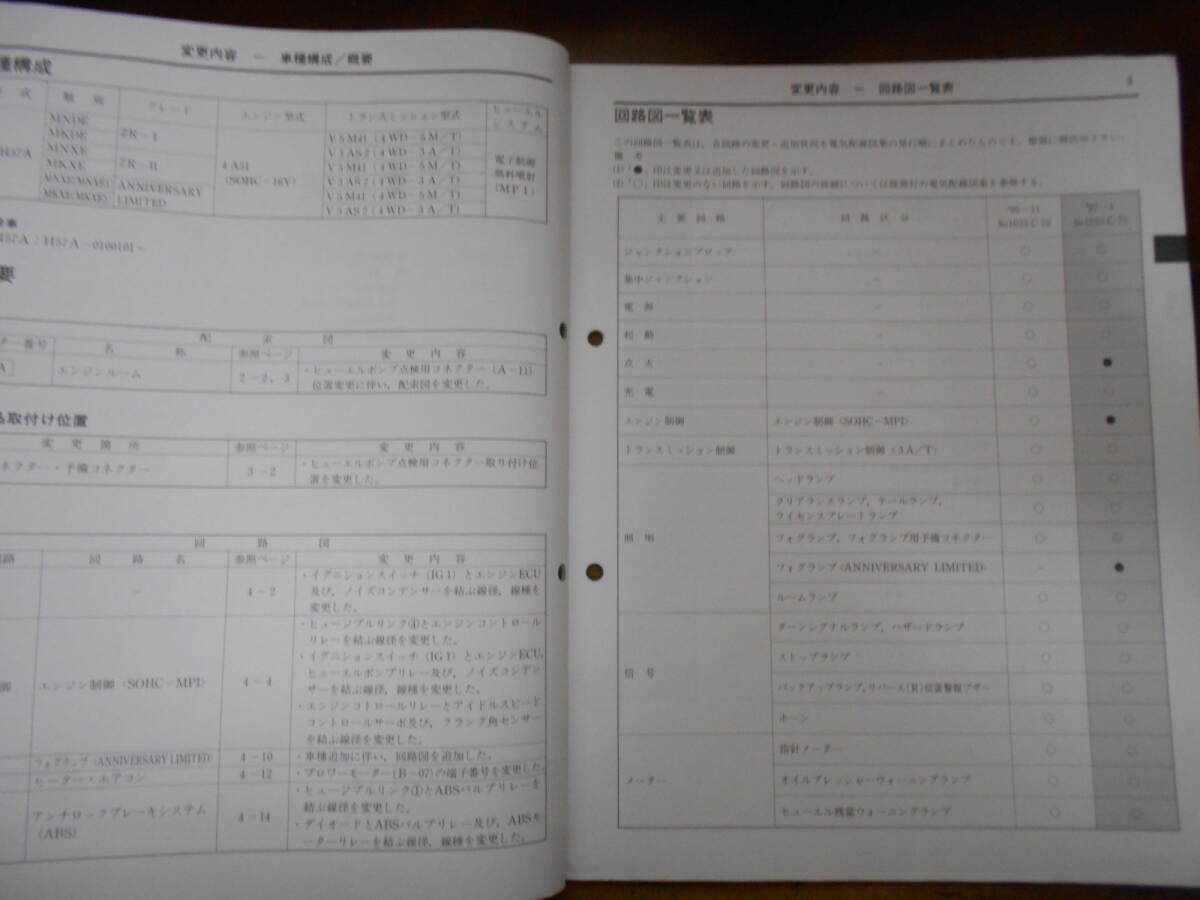 変更内容 － 車種構成／概要
種構成
式
類別
グレード
エンジン型式
トランスミッション型式
ヒューエルシステム
H57A
MNDE
MKDE
MNXE
MKXE
MNXE(MNXE1)
MKXE(MKXE1)
ZR－I
ZR－II
ANNIVERSARY
LIMITED
4A31
(SOHC－16V)
V5M41 (4WD－5M／T)
V3AS2 (4WD－3A／T)
V5M41 (4WD－5M／T)
V3AS2 (4WD－3A／T)
V5M41 (4WD－5M／T)
V3AS2 (4WD－3A／T)
電子制御
燃料噴射
(MPI)
H57A：H57A－0100101～
要
配 索 図
番号
名 称
参照ページ
変 更 内 容
A
エンジンルーム
2－2，3
・ヒューエルポンプ点検用コネクター（A－11）
位置変更に伴い，配索図を変更した。
取付け位置
変 更 箇 所
参照ページ
変 更 内 容
ネクター・予備コネクター
3－2
・ヒューエルポンプ点検用コネクター取り付け位
置を変更した。
回 路 図
回 路 名
参照ページ
変 更 内 容
－
4－2
・イグニションスイッチ（IG1）とエンジンECU
及び，ノイズコンデンサーを結ぶ線径，線種を
変更した。
エンジン制御〈SOHC－MPI〉
4－4
・ヒュージブルリンク④とエンジンコントロール
リレーを結ぶ線径を変更した。
・イグニションスイッチ（IG1）とエンジンECU，
ヒューエルポンプリレー及び，ノイズコンデン
サーを結ぶ線径，線種を変更した。
・エンジンコトロールリレーとアイドルスピード
コントロールサーボ及び，クランク角センサー
を結ぶ線径を変更した。
フォグランプ〈ANNIVERSARY LIMITED〉
4－10
・車種追加に伴い，回路図を追加した。
ヒーター・エアコン
4－12
・ブロワーモーター（B－07）の端子番号を変更した。
アンチロックブレーキシステム
(ABS)
4－14
・ヒュージブルリンク①とABSバルブリレーを
結ぶ線径を変更した。
・ダイオードとABSバルブリレー及び，ABSモ
ーターリレーを結ぶ線径，線種を変更した。
変更内容 － 回路図一覧表
回路図一覧表
この回路図一覧表は，各回路の変更・追加状況を電気配線図集の発行順にまとめたものです。整備に御活用下さい。
備 考
(1)「●」印は変更又は追加した回路図を示す。
(2)「○」印は変更のない回路を示す。回路図の詳細については既発行の電気配線図集を参照する。
主 要 回 路
回 路 区 分
ジャンクションブロック － ○ ○
集中ジャンクション － ○ ○
電 源 － ○ ○
起 動 － ○ ○
点 火 － ○ ●
充 電 － ○ ○
エンジン制御 エンジン制御〈SOHC－MPI〉 ○ ●
トランスミッション制御 トランスミッション制御〈3A／T〉 ○ ○
照 明
ヘッドランプ ○ ○
クリアランスランプ，テールランプ，
ライセンスプレートランプ ○ ○
フォグランプ，フォグランプ用予備コネクター ○ ○
フォグランプ〈ANNIVERSARY LIMITED〉 － ●
ルームランプ ○ ○
信 号
ターンシグナルランプ，ハザードランプ ○ ○
ストップランプ ○ ○
バックアップランプ，リバース(R)位置警報ブザー ○ ○
ホーン ○ ○
メーター
指針メーター ○ ○
オイルプレッシャーウォーニングランプ ○ ○
ヒューエル残量ウォーニングランプ ○ ○